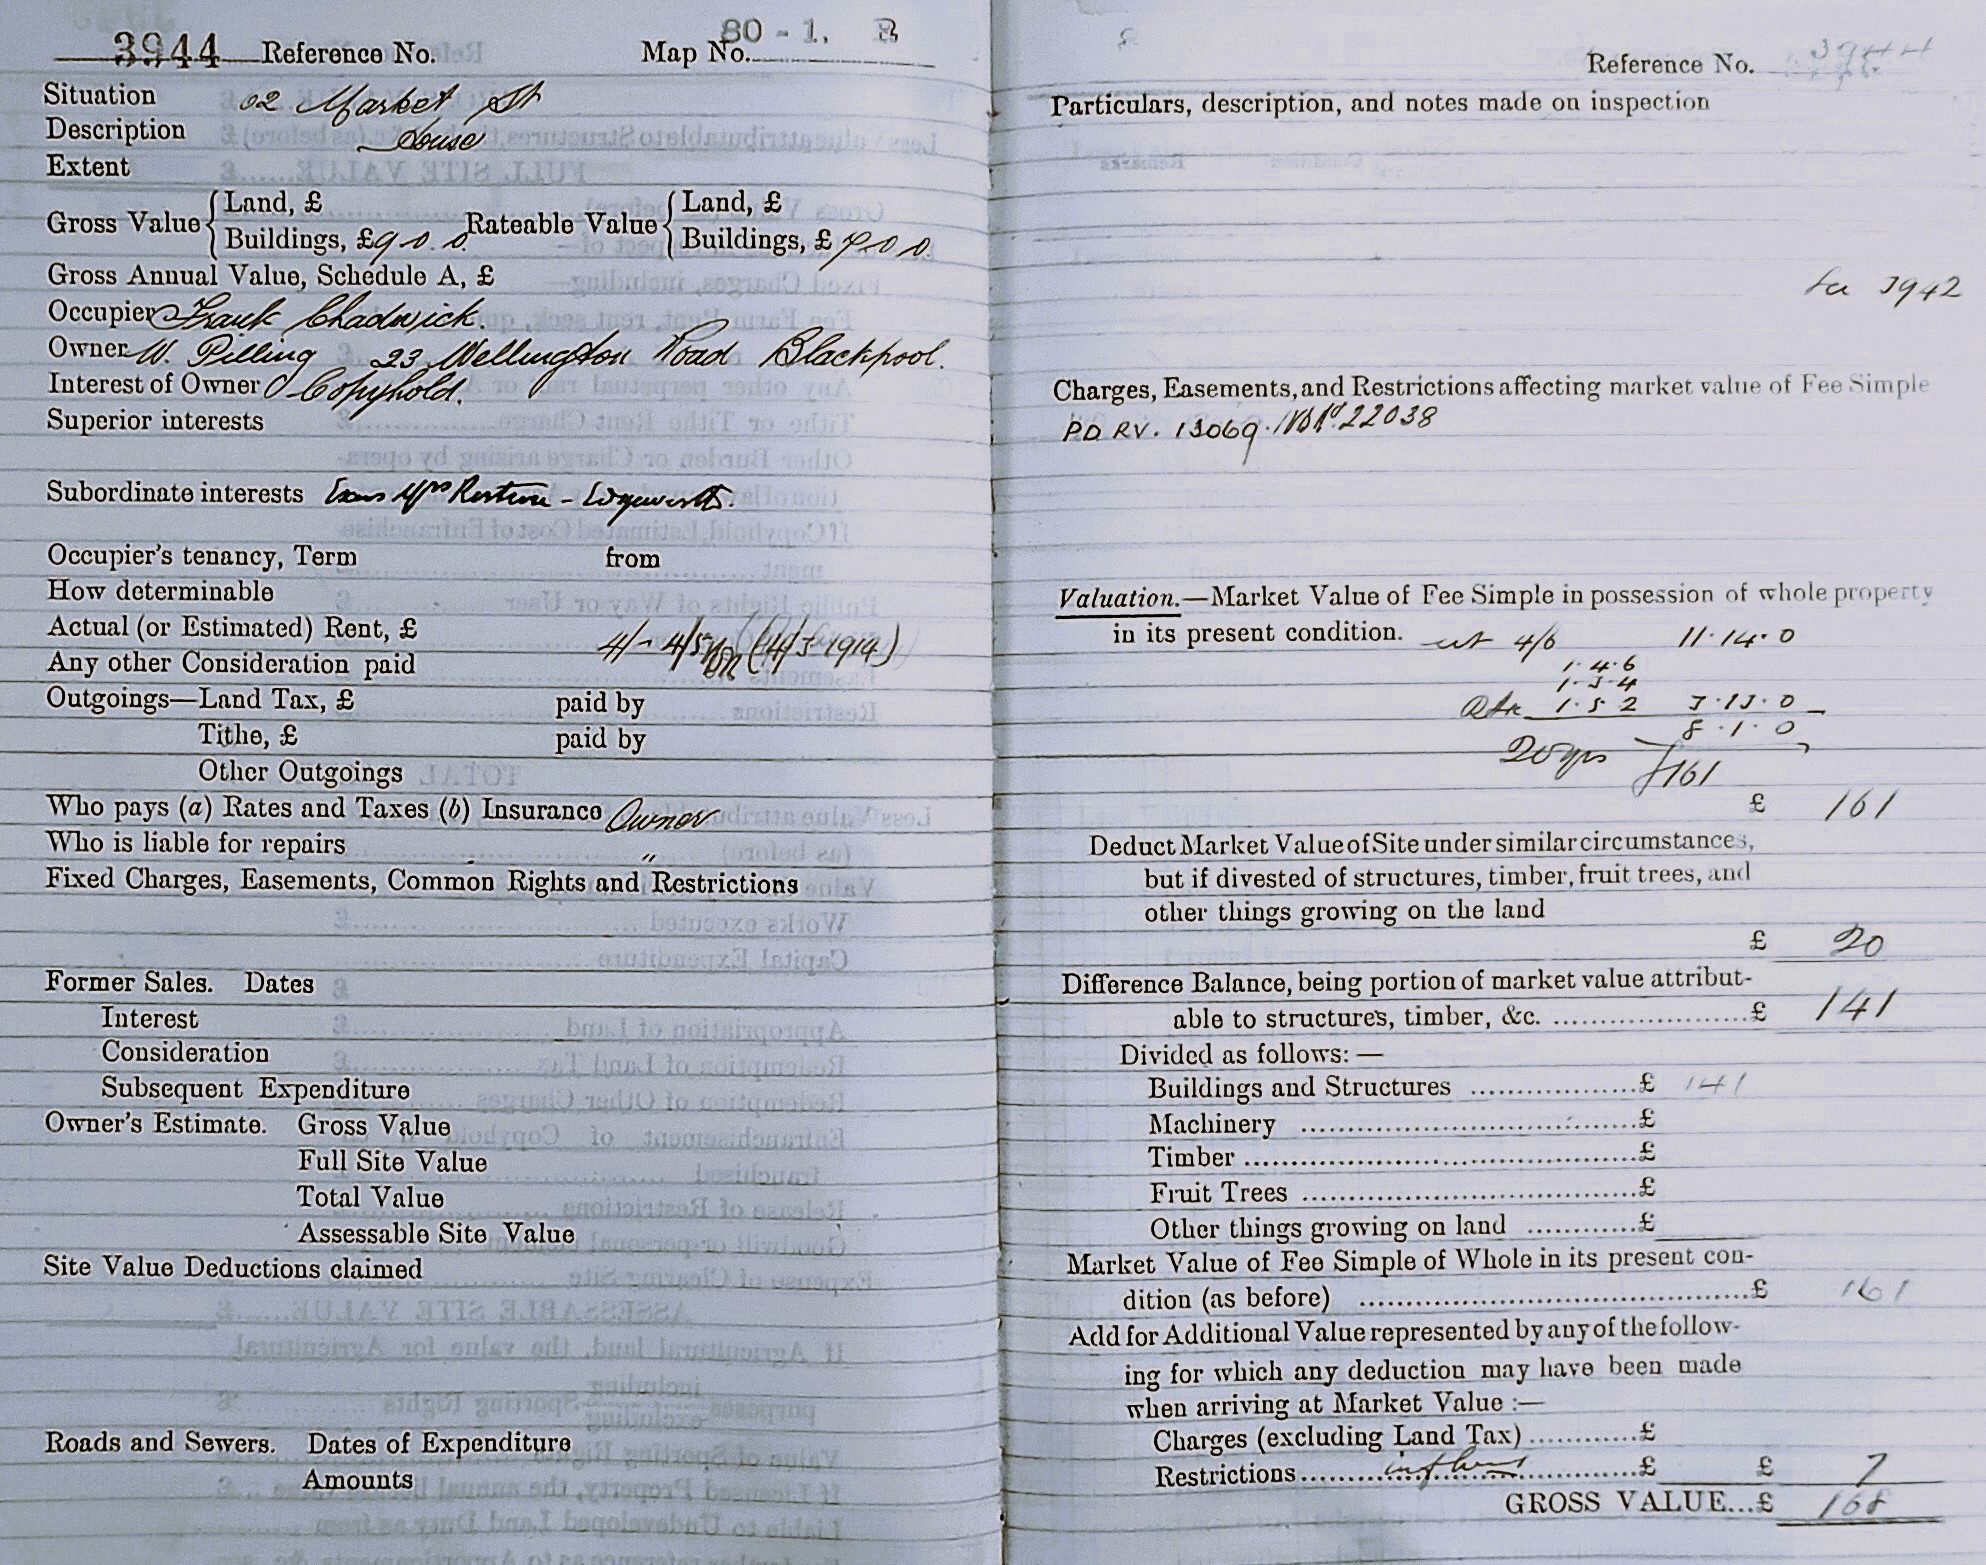 3944 Reference No. Map No. 80 - 1. B
Situation 02 Market St
Description House
Extent
Gross Value { Land, £ Rateable Value { Land, £
Buildings, £ 9 - 0 . 0. Buildings, £ 9 - 0 0.
Gross Annual Value, Schedule A, £
Occupier Frank Chadwick.
Owner W. Pilling 23 Wellington Road Blackpool.
Interest of Owner Copyhold.
Superior interests
Subordinate interests Exors Mrs - Edgeworth.
Occupier's tenancy, Term from
How determinable
Actual (or Estimated) Rent, £ 4/- 4/5 (4/5 1914)
Any other Consideration paid
Outgoings—Land Tax, £ paid by
Tithe, £ paid by
Other Outgoings
Who pays (a) Rates and Taxes (b) Insurance Owner
Who is liable for repairs "
Fixed Charges, Easements, Common Rights and Restrictions
Former Sales. Dates
Interest
Consideration
Subsequent Expenditure
Owner's Estimate. Gross Value
Full Site Value
Total Value
Assessable Site Value
Site Value Deductions claimed
Roads and Sewers. Dates of Expenditure
Amounts
Reference No. 3944
Particulars, description, and notes made on inspection
3942
Charges, Easements, and Restrictions affecting market value of Fee Simple
P.D RV. 13069. 22038
Valuation.—Market Value of Fee Simple in possession of whole property
in its present condition. at 4/6 11 . 14 . 0
1 . 4 . 6
1 . 3 . 4
1 . 5 2 3 . 13 . 0
8 . 1 . 0
20 yrs £161
£ 161
Deduct Market Value of Site under similar circumstances,
but if divested of structures, timber, fruit trees, and
other things growing on the land
£ 20
Difference Balance, being portion of market value attribut-
able to structures, timber, &c. ........................ £ 141
Divided as follows: —
Buildings and Structures .................. £ 141
Machinery .................................... £
Timber .......................................... £
Fruit Trees .................................... £
Other things growing on land ............ £
Market Value of Fee Simple of Whole in its present con-
dition (as before) ............................................ £ 161
Add for Additional Value represented by any of the follow-
ing for which any deduction may have been made
when arriving at Market Value :—
Charges (excluding Land Tax) ............ £
Restrictions .................. £ £ 7
GROSS VALUE...£ 168